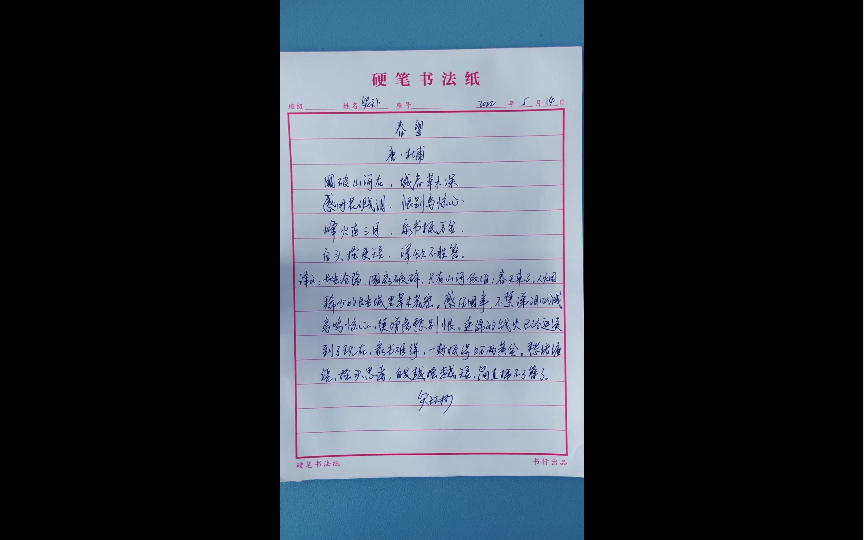 硬笔书法纸
班级 姓名 座号 2022 年 5 月 14 日
春望
唐·杜甫
国破山河在，城春草木深
感时花溅泪，恨别鸟惊心.
烽火连三月，家书抵万金.
白头搔更短，浑欲不胜簪。
译文：长安沦陷，国家破碎，只有山河依旧；春天来了，人烟
稀少的长安城里草木茂密。感伤国事，不禁涕泪四溅
鸟鸣惊心，徒增离愁别恨。连绵的战火已经延续
到了现在，家书难得，一封抵得上万两黄金。愁绪缠
绕，搔头思考，白发越来越短，简直插不了簪了。
硬笔书法纸
书行出品